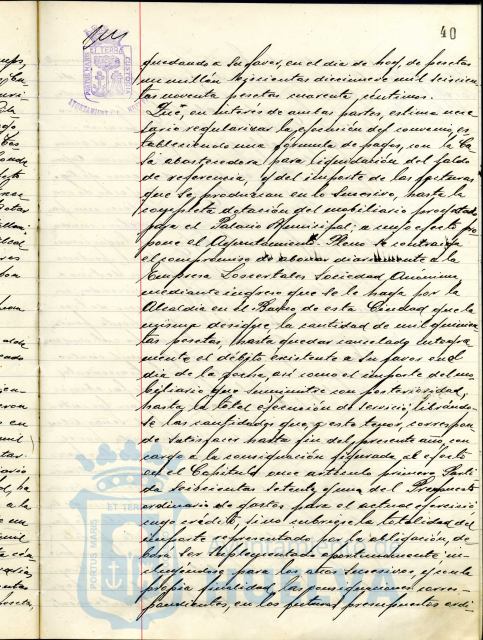 40
quedando a su favor, en el día de hoy, de pesetas
un millón seiscientas diecinueve mil seiscien-
tas noventa pesetas cuarenta céntimos.
Que, en interés de ambas partes, estima nece-
sario regularizar la ejecución del convenio, es-
tableciendo una fórmula de pagos, con la Ca-
sa abastecedora para liquidación del saldo
de referencia, y del importe de las facturas
que se produzcan en lo sucesivo, hasta la
completa dotación del mobiliario proyectado
para el Palacio Municipal; a cuyo efecto pro-
pone el Ayuntamiento Pleno se contraiga
el compromiso de abonar diariamente a la
Empresa Loscertales Sociedad Anónima
mediante ingreso que se le haga por la
Alcaldía en el Banco de esta Ciudad que la
misma designe, la cantidad de mil quinien-
tas pesetas, hasta quedar cancelado íntegra-
mente el débito existente a su favor en el
día de la fecha, así como el importe del mo-
biliario que suministre con posterioridad,
hasta la total ejecución del servicio; librándo-
se las cantidades que, y a este tenor, correspon-
da satisfacer hasta fin del presente año, con
cargo a la consignación figurada al efecto
en el Capítulo once artículo primero Parti-
da seiscientas setenta y una del Presupuesto
ordinario de gastos para el actual ejercicio
cuyo crédito, si no cubriese la totalidad del
importe representado por la obligación, de-
berá ser suplementado oportunamente in-
cluyéndose para los años sucesivos, y con la
propia finalidad, las consignaciones corres-
pondientes, en los futuros presupuestos ordi-
PORTUS MARIS
ET TERRAE
CUSTODIA
Ayuntamiento de
HUELVA